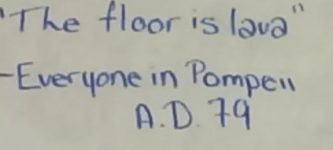 "The floor is lava"
-Everyone in Pompeii
A.D. 79